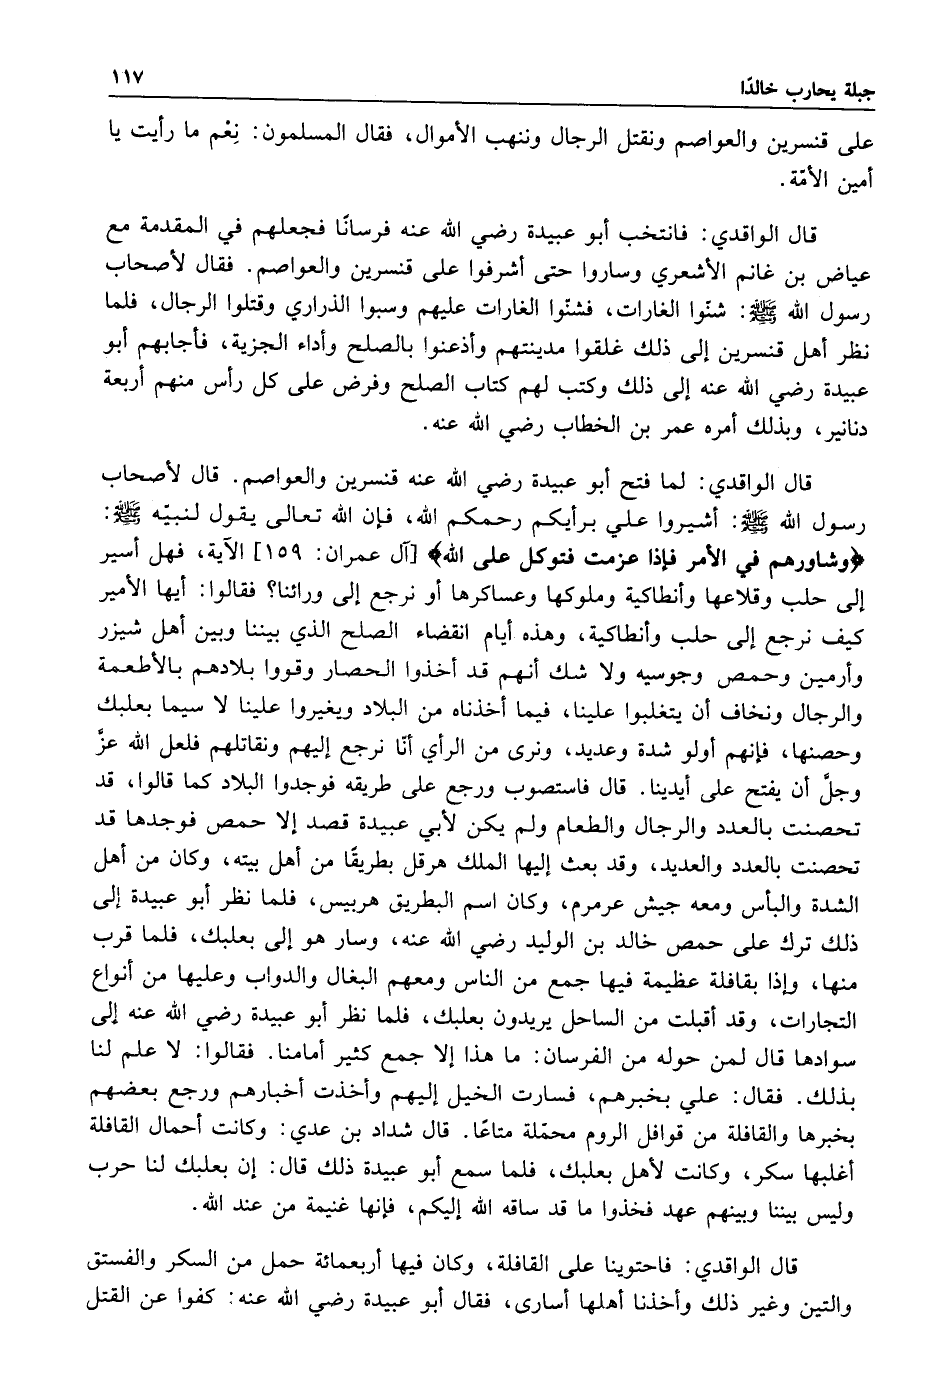 جبلة يحارب خالدًا
١١٧
على قنسرين والعواصم ونقتل الرجال وننهب الأموال، فقال المسلمون: نِعْم ما رأيت يا
أمين الأمّة.
قال الواقدي: فانتخب أبو عبيدة رضي الله عنه فرسانًا فجعلهم في المقدمة مع
عياض بن غانم الأشعري وساروا حتى أشرفوا على قنسرين والعواصم. فقال لأصحاب
رسول الله ﷺ: شنّوا الغارات، فشنّوا الغارات عليهم وسبوا الذراري وقتلوا الرجال، فلما
نظر أهل قنسرين إلى ذلك غلقوا مدينتهم وأذعنوا بالصلح وأداء الجزية، فأجابهم أبو
عبيدة رضي الله عنه إلى ذلك وكتب لهم كتاب الصلح وفرض على كل رأس منهم أربعة
دنانير، وبذلك أمره عمر بن الخطاب رضي الله عنه.
قال الواقدي: لما فتح أبو عبيدة رضي الله عنه قنسرين والعواصم. قال لأصحاب
رسول الله ﷺ: أشيروا علي برأيكم رحمكم الله، فإن الله تعالى يقول لنبيّه ﷺ:
﴿وشاورهم في الأمر فإذا عزمت فتوكل على الله﴾ [آل عمران: ١٥٩] الآية، فهل أسير
إلى حلب وقلاعها وأنطاكية وملوكها وعساكرها أو نرجع إلى ورائنا؟ فقالوا: أيها الأمير
كيف نرجع إلى حلب وأنطاكية، وهذه أيام انقضاء الصلح الذي بيننا وبين أهل شيزر
وأرمين وحمص وجوسيه ولا شك أنهم قد أخذوا الحصار وقووا بلادهم بالأطعمة
والرجال ونخاف أن يتغلبوا علينا، فيما أخذناه من البلاد ويغيروا علينا لا سيما بعلبك
وحصنها، فإنهم أولو شدة وعديد، ونرى من الرأي أنّا نرجع إليهم ونقاتلهم فلعل الله عزَّ
وجلَّ أن يفتح على أيدينا. قال فاستصوب ورجع على طريقه فوجدوا البلاد كما قالوا، قد
تحصنت بالعدد والرجال والطعام ولم يكن لأبي عبيدة قصد إلا حمص فوجدها قد
تحصنت بالعدد والعديد، وقد بعث إليها الملك هرقل بطريقًا من أهل بيته، وكان من أهل
الشدة والبأس ومعه جيش عرمرم، وكان اسم البطريق هربيس، فلما نظر أبو عبيدة إلى
ذلك ترك على حمص خالد بن الوليد رضي الله عنه، وسار هو إلى بعلبك، فلما قرب
منها، وإذا بقافلة عظيمة فيها جمع من الناس ومعهم البغال والدواب وعليها من أنواع
التجارات، وقد أقبلت من الساحل يريدون بعلبك، فلما نظر أبو عبيدة رضي الله عنه إلى
سوادها قال لمن حوله من الفرسان: ما هذا إلا جمع كثير أمامنا. فقالوا: لا علم لنا
بذلك. فقال: علي بخبرهم، فسارت الخيل إليهم وأخذت أخبارهم ورجع بعضهم
بخبرها والقافلة من قوافل الروم محمّلة متاعًا. قال شداد بن عدي: وكانت أحمال القافلة
أغلبها سكر، وكانت لأهل بعلبك، فلما سمع أبو عبيدة ذلك قال: إن بعلبك لنا حرب
وليس بيننا وبينهم عهد فخذوا ما قد ساقه الله إليكم، فإنها غنيمة من عند الله.
قال الواقدي: فاحتوينا على القافلة، وكان فيها أربعمائة حمل من السكر والفستق
والتين وغير ذلك وأخذنا أهلها أسارى، فقال أبو عبيدة رضي الله عنه: كفوا عن القتل